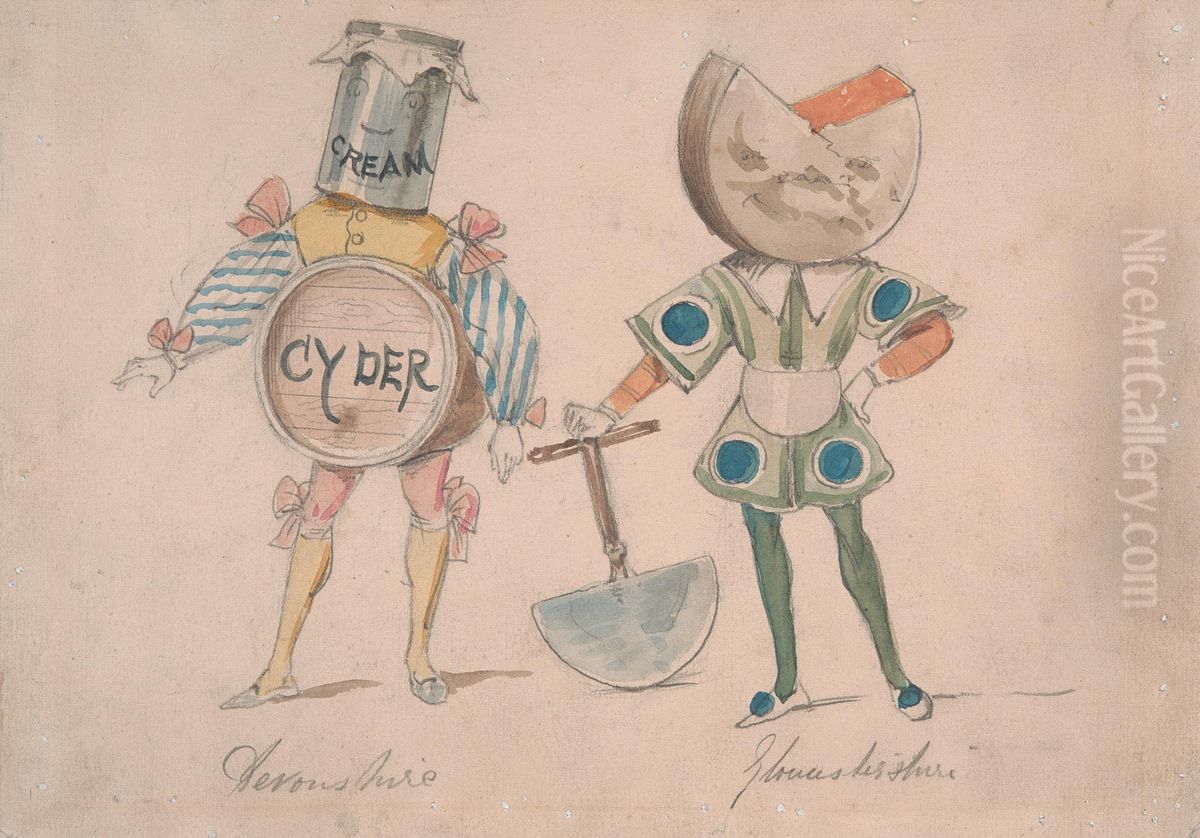 CREAM
CYDER
Devonshire
Gloucestershire
NiceArtGallery.com